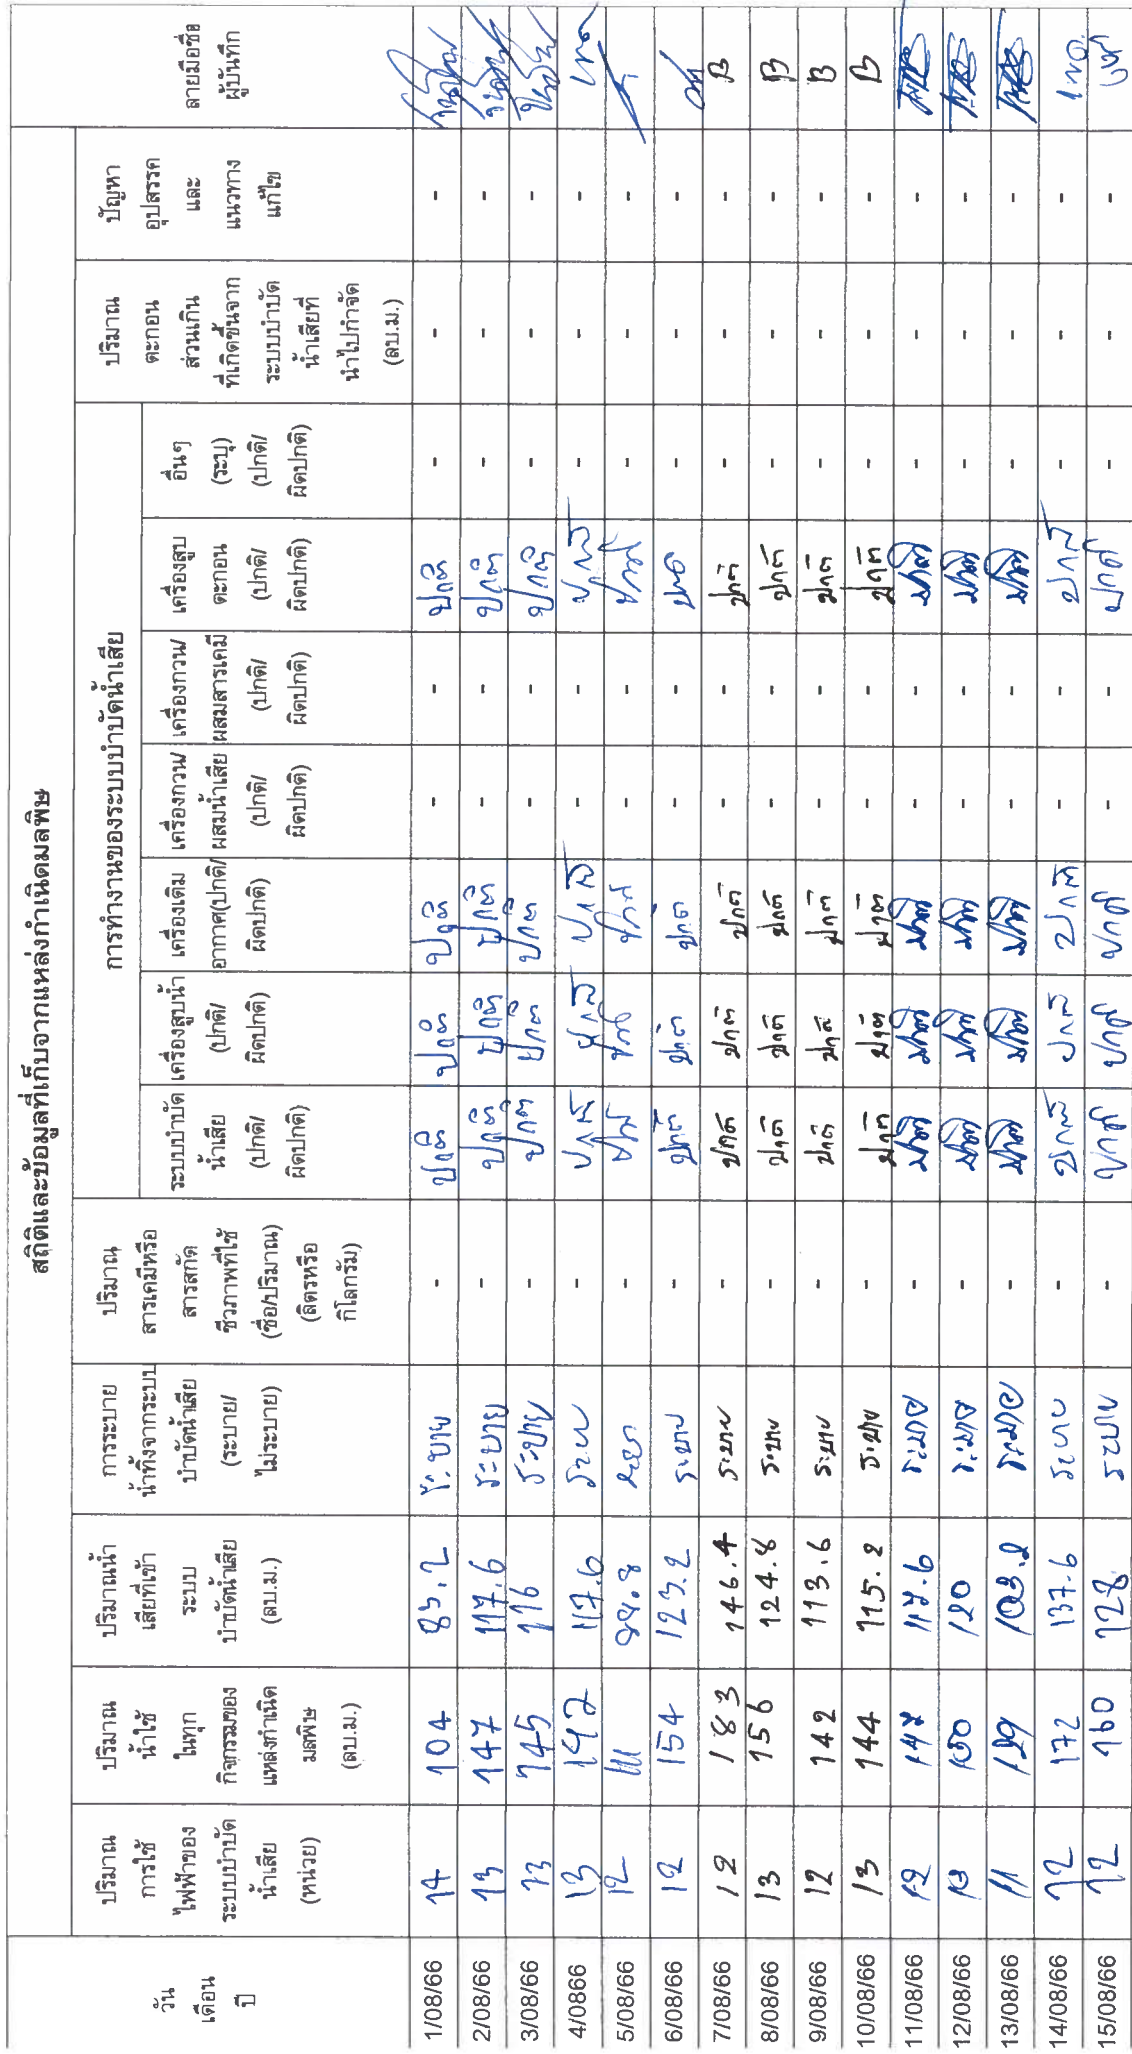 สถิติและข้อมูลที่เก็บจากแหล่งกำเนิดมลพิษ
วัน เดือน ปี
ปริมาณ การใช้ ไฟฟ้าของ ระบบบำบัด น้ำเสีย (หน่วย)
ปริมาณ น้ำใช้ ในทุก กิจกรรมของ แหล่งกำเนิด มลพิษ (ลบ.ม.)
ปริมาณน้ำ เสียที่เข้า ระบบ บำบัดน้ำเสีย (ลบ.ม.)
การระบาย น้ำทิ้งจากระบบ บำบัดน้ำเสีย (ระบาย/ ไม่ระบาย)
ปริมาณ สารเคมีหรือ สารสกัด ชีวภาพที่ใช้ (ชื่อ/ปริมาณ) (ลิตรหรือ กิโลกรัม)
การทำงานของระบบบำบัดน้ำเสีย
ระบบบำบัด น้ำเสีย (ปกติ/ ผิดปกติ)
เครื่องสูบน้ำ (ปกติ/ ผิดปกติ)
เครื่องเติม อากาศ(ปกติ/ ผิดปกติ)
เครื่องกวน/ ผสมน้ำเสีย (ปกติ/ ผิดปกติ)
เครื่องกวน/ ผสมสารเคมี (ปกติ/ ผิดปกติ)
เครื่องสูบ ตะกอน (ปกติ/ ผิดปกติ)
อื่นๆ (ระบุ) (ปกติ/ ผิดปกติ)
ปริมาณ ตะกอน ส่วนเกิน ที่เกิดขึ้นจาก ระบบบำบัด น้ำเสียที่ นำไปกำจัด (ลบ.ม.)
ปัญหา อุปสรรค และ แนวทาง แก้ไข
ลายมือชื่อ ผู้บันทึก
1/08/66 14 104 83.2 ระบาย - ปกติ ปกติ ปกติ - - ปกติ - - -
2/08/66 13 147 117.6 ระบาย - ปกติ ปกติ ปกติ - - ปกติ - - -
3/08/66 13 145 116 ระบาย - ปกติ ปกติ ปกติ - - ปกติ - - -
4/0866 13 117.6 ระบาย - ปกติ ปกติ ปกติ - - ปกติ - - -
5/08/66 12 111 88.8 ระบาย - ปกติ ปกติ ปกติ - - ปกติ - - -
6/08/66 12 154 123.2 ระบาย - ปกติ ปกติ ปกติ - - ปกติ - - -
7/08/66 12 183 146.4 ระบาย - ปกติ ปกติ ปกติ - - ปกติ - - - B
8/08/66 13 156 124.8 ระบาย - ปกติ ปกติ ปกติ - - ปกติ - - - B
9/08/66 12 142 113.6 ระบาย - ปกติ ปกติ ปกติ - - ปกติ - - - B
10/08/66 13 144 115.2 ระบาย - ปกติ ปกติ ปกติ - - ปกติ - - - B
11/08/66 12 147 117.6 ระบาย - ปกติ ปกติ ปกติ - - ปกติ - - -
12/08/66 13 150 120 ระบาย - ปกติ ปกติ ปกติ - - ปกติ - - -
13/08/66 11 129 103.2 ระบาย - ปกติ ปกติ ปกติ - - ปกติ - - -
14/08/66 12 172 137.6 ระบาย - ปกติ ปกติ ปกติ - - ปกติ - - -
15/08/66 12 160 128 ระบาย - ปกติ ปกติ ปกติ - - ปกติ - - -